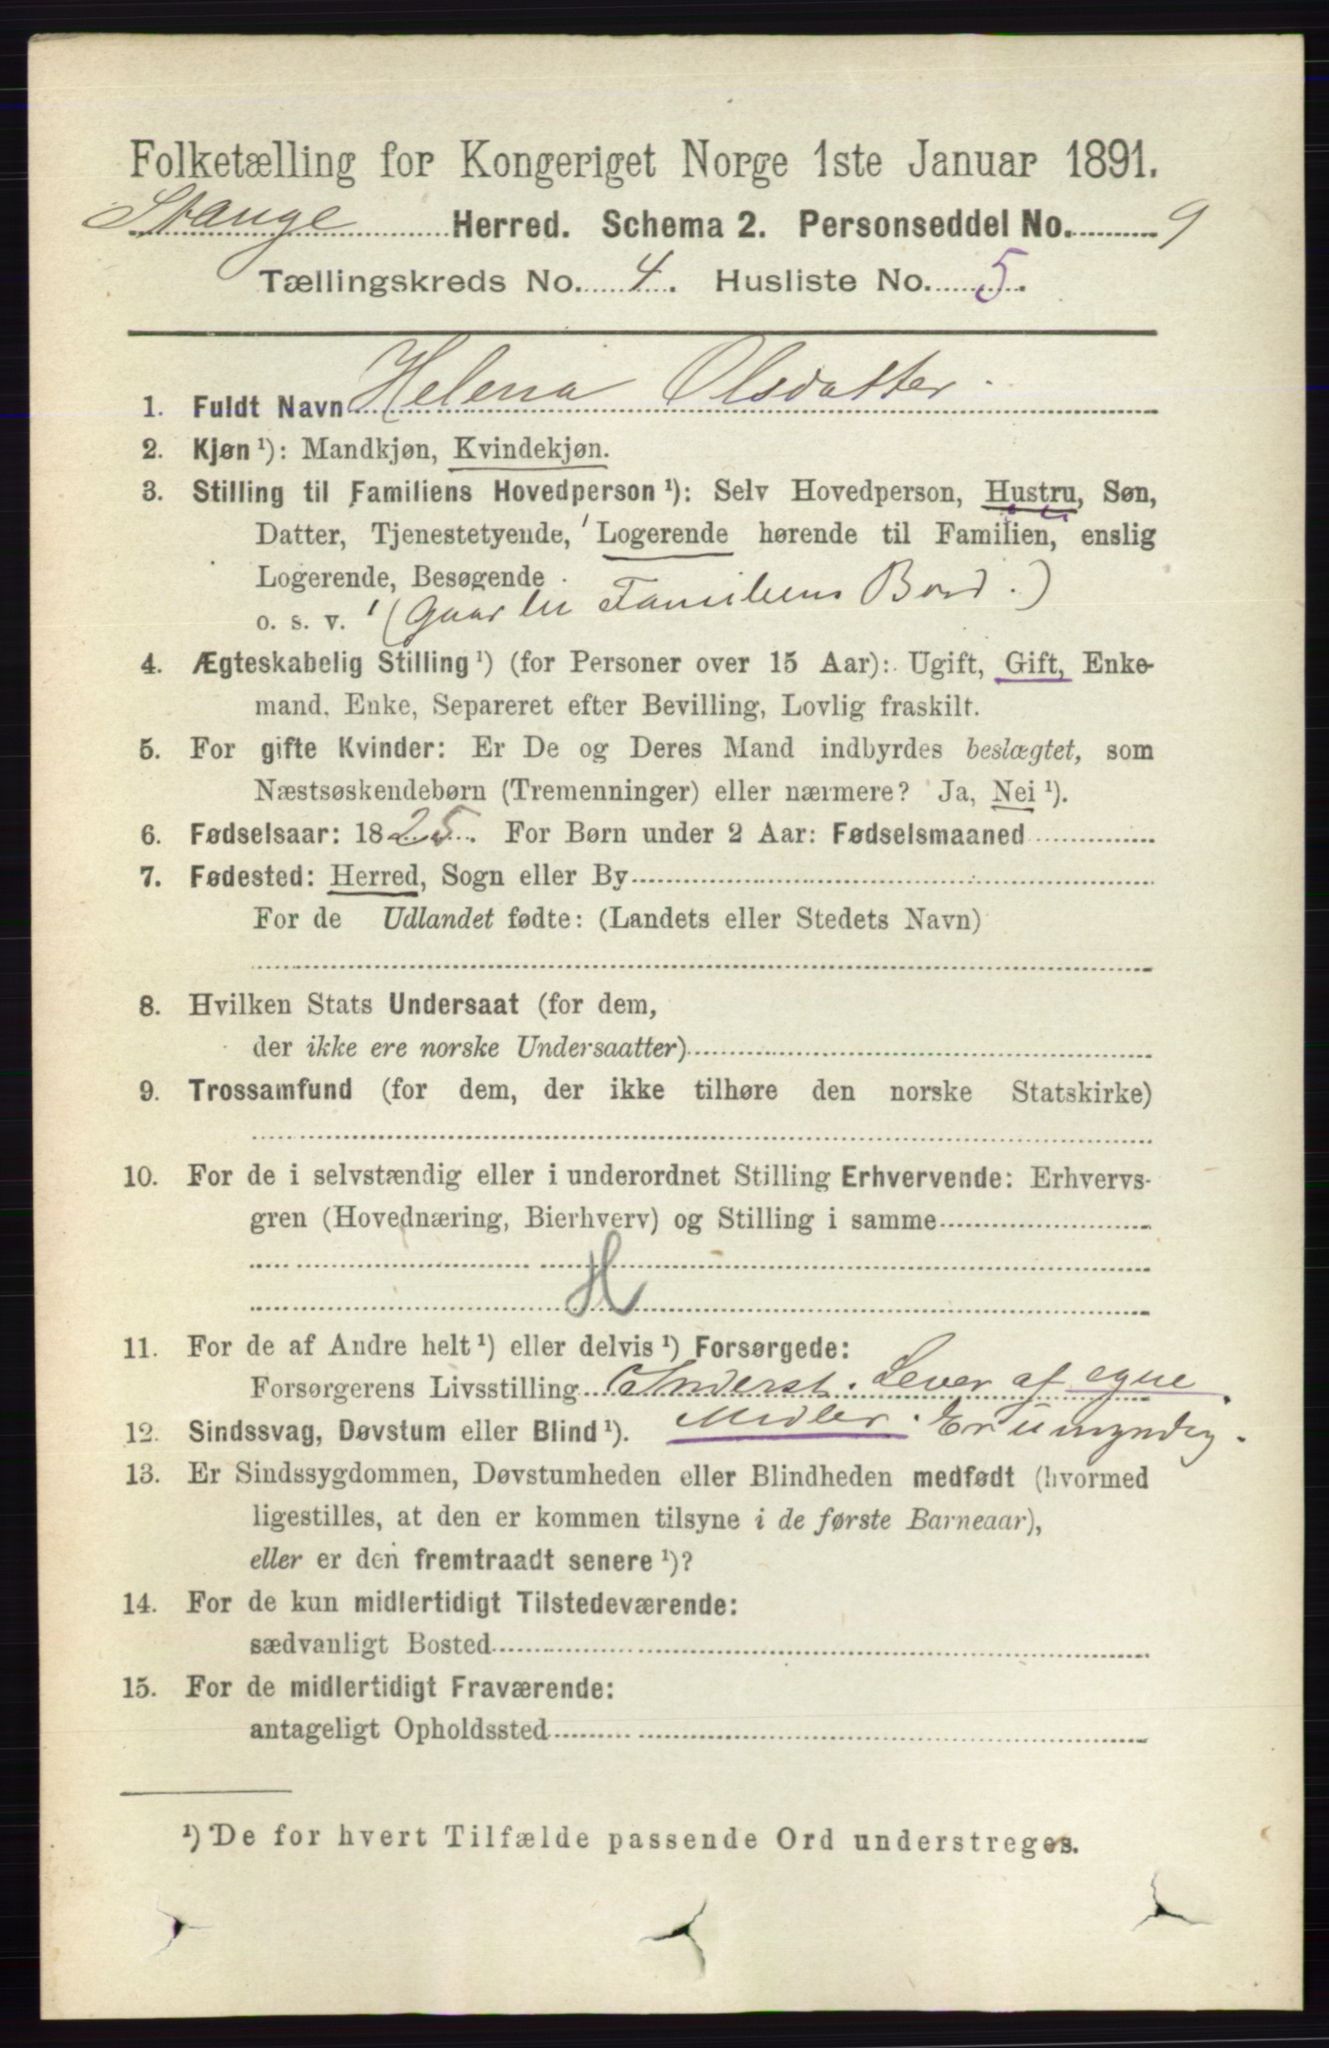 Folketælling for Kongeriget Norge 1ste Januar 1891.
Stange Herred. Schema 2. Personseddel No. 9
Tællingskreds No. 4. Husliste No. 5.
1. Fuldt Navn Helena Olsdatter.
2. Kjøn¹): Mandkjøn, Kvindekjøn.
3. Stilling til Familiens Hovedperson¹): Selv Hovedperson, Hustru, Søn,
Datter, Tjenestetyende, Logerende hørende til Familien, enslig
Logerende, Besøgende
o. s. v. (Gaar til Familiens Bord.)
4. Ægteskabelig Stilling¹) (for Personer over 15 Aar): Ugift, Gift, Enke-
mand, Enke, Separeret efter Bevilling, Lovlig fraskilt.
5. For gifte Kvinder: Er De og Deres Mand indbyrdes beslægtet, som
Næstsøskendebørn (Tremenninger) eller nærmere? Ja, Nei¹).
6. Fødselsaar: 1825. For Børn under 2 Aar: Fødselsmaaned
7. Fødested: Herred, Sogn eller By
For de Udlandet fødte: (Landets eller Stedets Navn)
8. Hvilken Stats Undersaat (for dem,
der ikke ere norske Undersaatter)
9. Trossamfund (for dem, der ikke tilhøre den norske Statskirke)
10. For de i selvstændig eller i underordnet Stilling Erhvervende: Erhvervs-
gren (Hovednæring, Bierhverv) og Stilling i samme
H
11. For de af Andre helt¹) eller delvis¹) Forsørgede:
Forsørgerens Livsstilling Inderst. Lever af egne
12. Sindssvag, Døvstum eller Blind¹). Midler. Er umyndig.
13. Er Sindssygdommen, Døvstumheden eller Blindheden medfødt (hvormed
ligestilles, at den er kommen tilsyne i de første Barneaar),
eller er den fremtraadt senere¹)?
14. For de kun midlertidigt Tilstedeværende:
sædvanligt Bosted
15. For de midlertidigt Fraværende:
antageligt Opholdssted
¹) De for hvert Tilfælde passende Ord understreges.